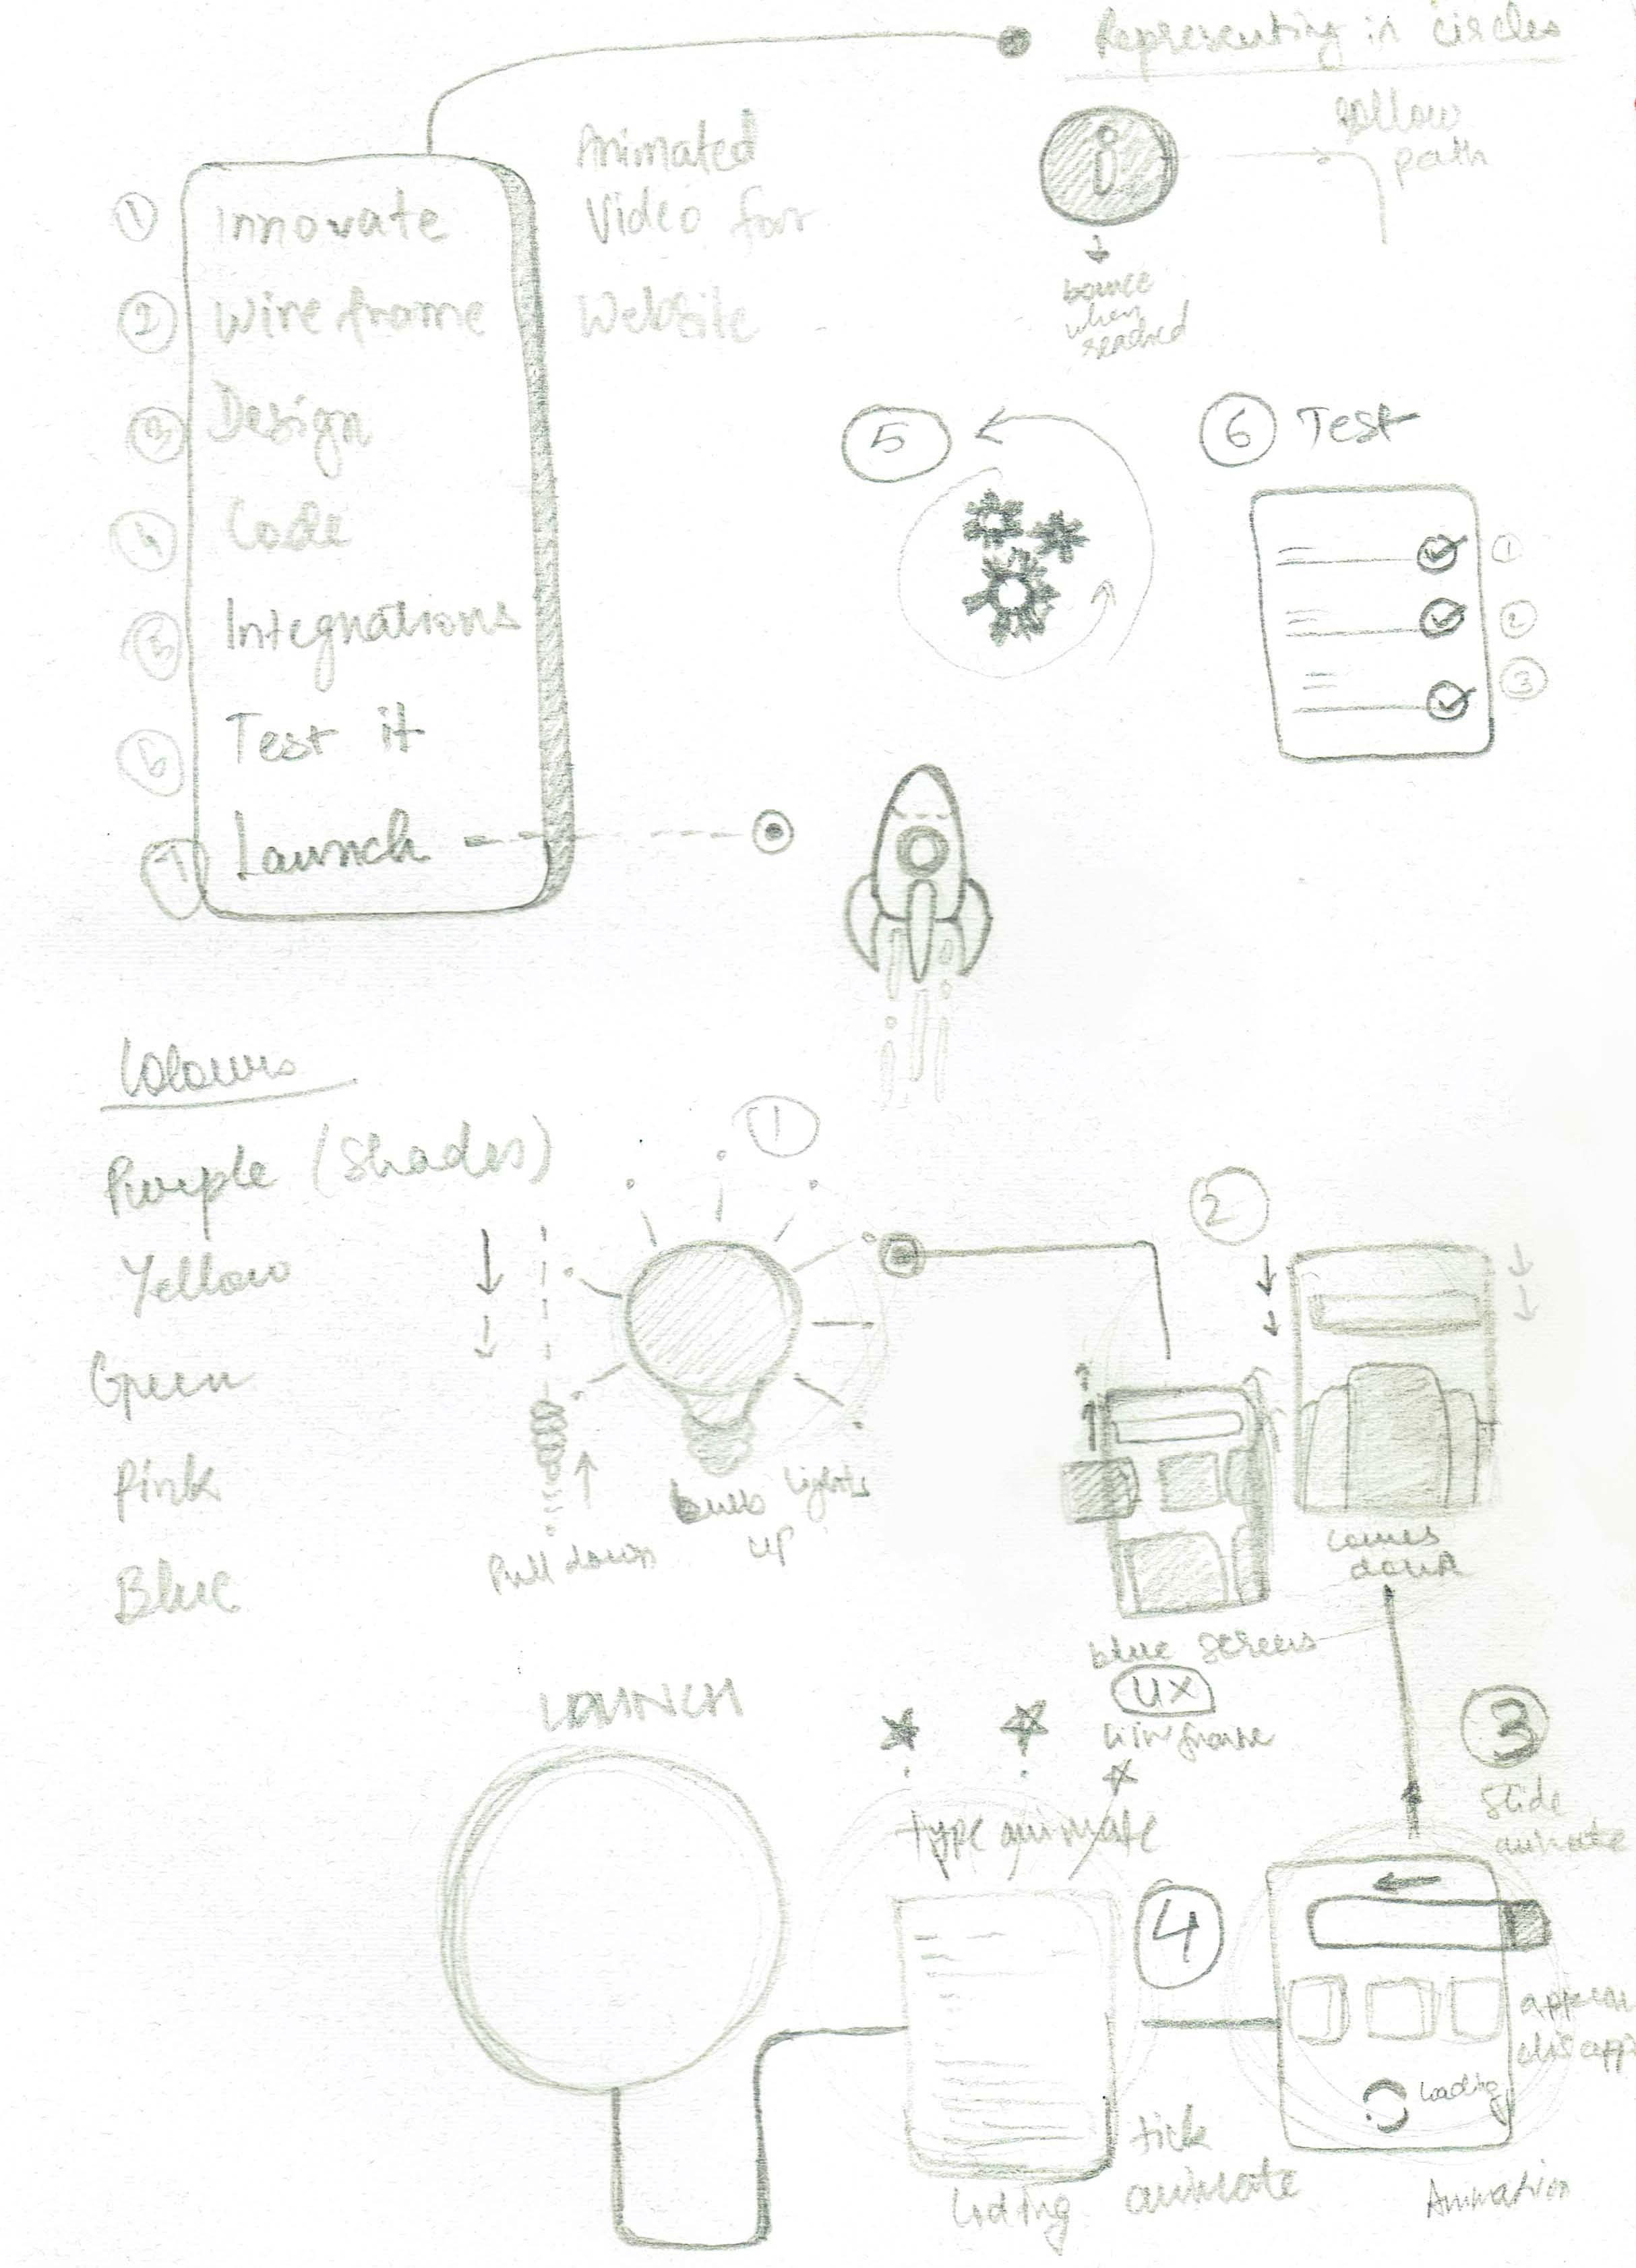 Representing in circles
Animated
Video for
Website
i
follow
path
bounce
when
reached
① Innovate
② Wireframe
③ Design
④ Code
⑤ Integrations
⑥ Test it
⑦ Launch
⑤
⑥ Test
①
②
③
Colours
Purple (Shades)
Yellow
Green
Pink
Blue
①
Pull down
bulb lights
up
②
comes
down
blue screens
UX
wireframe
③
Slide
animate
LAUNCH
type animate
④
Loading
tick
animate
Animation